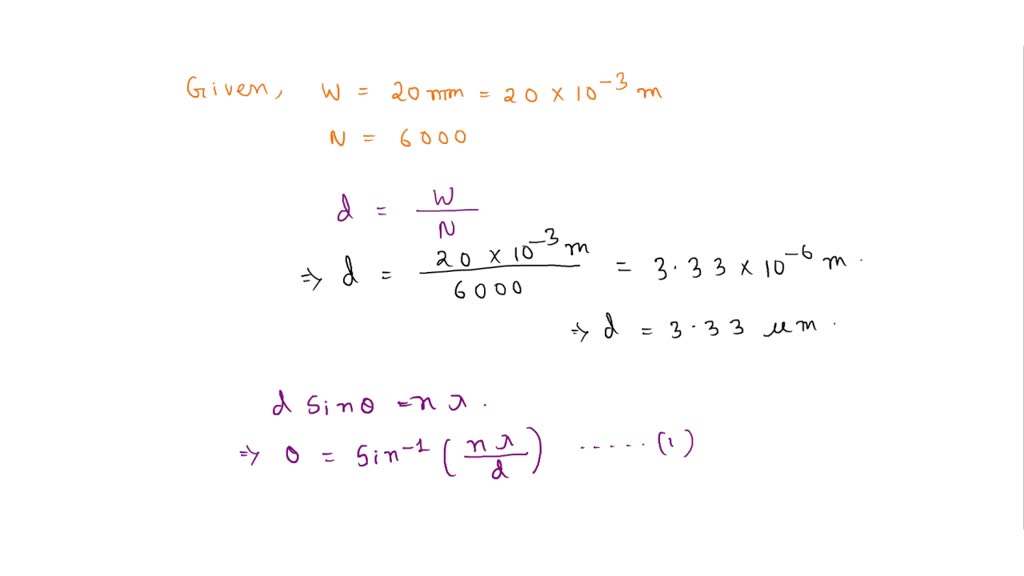 Given, W = 20 mm = 20 × 10⁻³ m
N = 6000
d = W/N
⇒ d = 20 × 10⁻³ m / 6000 = 3.33 × 10⁻⁶ m.
⇒ d = 3.33 μm.
d Sinθ = nλ.
⇒ θ = Sin⁻¹ (nλ/d) ......(1)